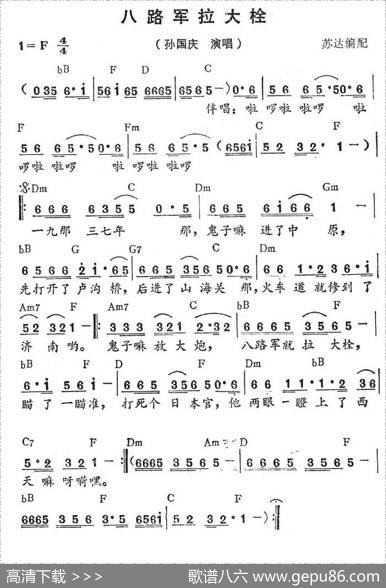 八路军拉大栓
1=F 4/4
（孙国庆 演唱）
苏达编配
bB F D C
(035 6·i 56i65 6665 6565-) 0·6 56 65·50·6
伴唱：啦 啰啦 啦啰 啦
F Fm C F
56 65·50·6 56 65·5 (656i 52 32·1-)
啰啦 啦啰 啦 啰啦 啦啰
Dm C Dm Gm
666 6355 0·5 666 6i66 1-
一九那 三七年 那，鬼子嘛 进了中 原，
bB G G7 C bB F
6566 2i·65 35635650·6 66 1·236·i
先打开了卢沟 桥，后进了山 海关 那，火车 道就修到了
Am7 F Am7 C bB F
52 321- 333 321 2·32 666 3565
济南哟。 鬼子嘛放大炮， 八路军就 拉 大栓，
bB F C bB F bB
6·i 56i 666 356506 66 11·1·236·i
瞄了一瞄准， 打死个 日本官，他 两眼一瞪上了西
C7 F Dm Am Dm C F
5·2 321- (6665 3565 6665 3565
天嘛 呀嗬嘿。
bB F C F
6665 356·i 6·5 656i 52 32·1-)
高清下载 >>>
歌谱八六 www.gepu86.com